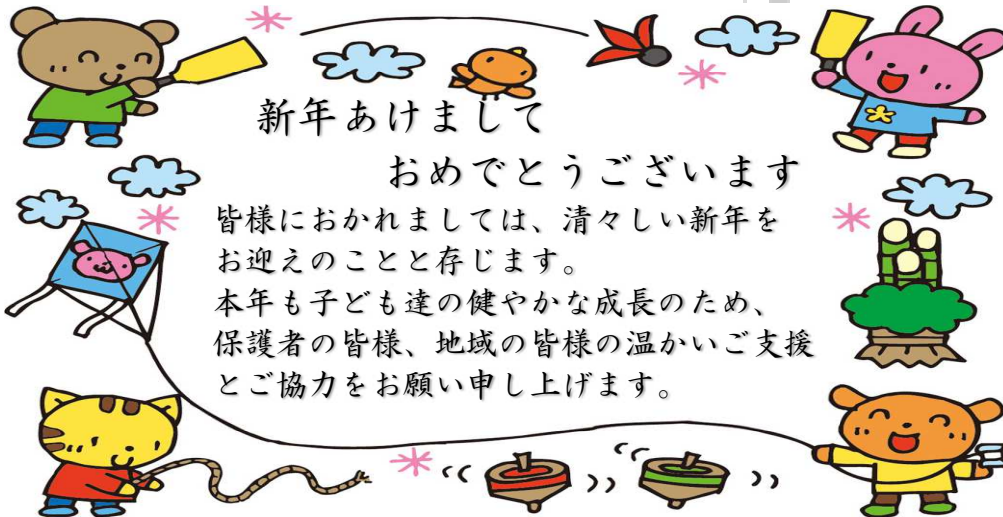 新年あけまして
おめでとうございます
皆様におかれましては、清々しい新年を
お迎えのことと存じます。
本年も子ども達の健やかな成長のため、
保護者の皆様、地域の皆様の温かいご支援
とご協力をお願い申し上げます。